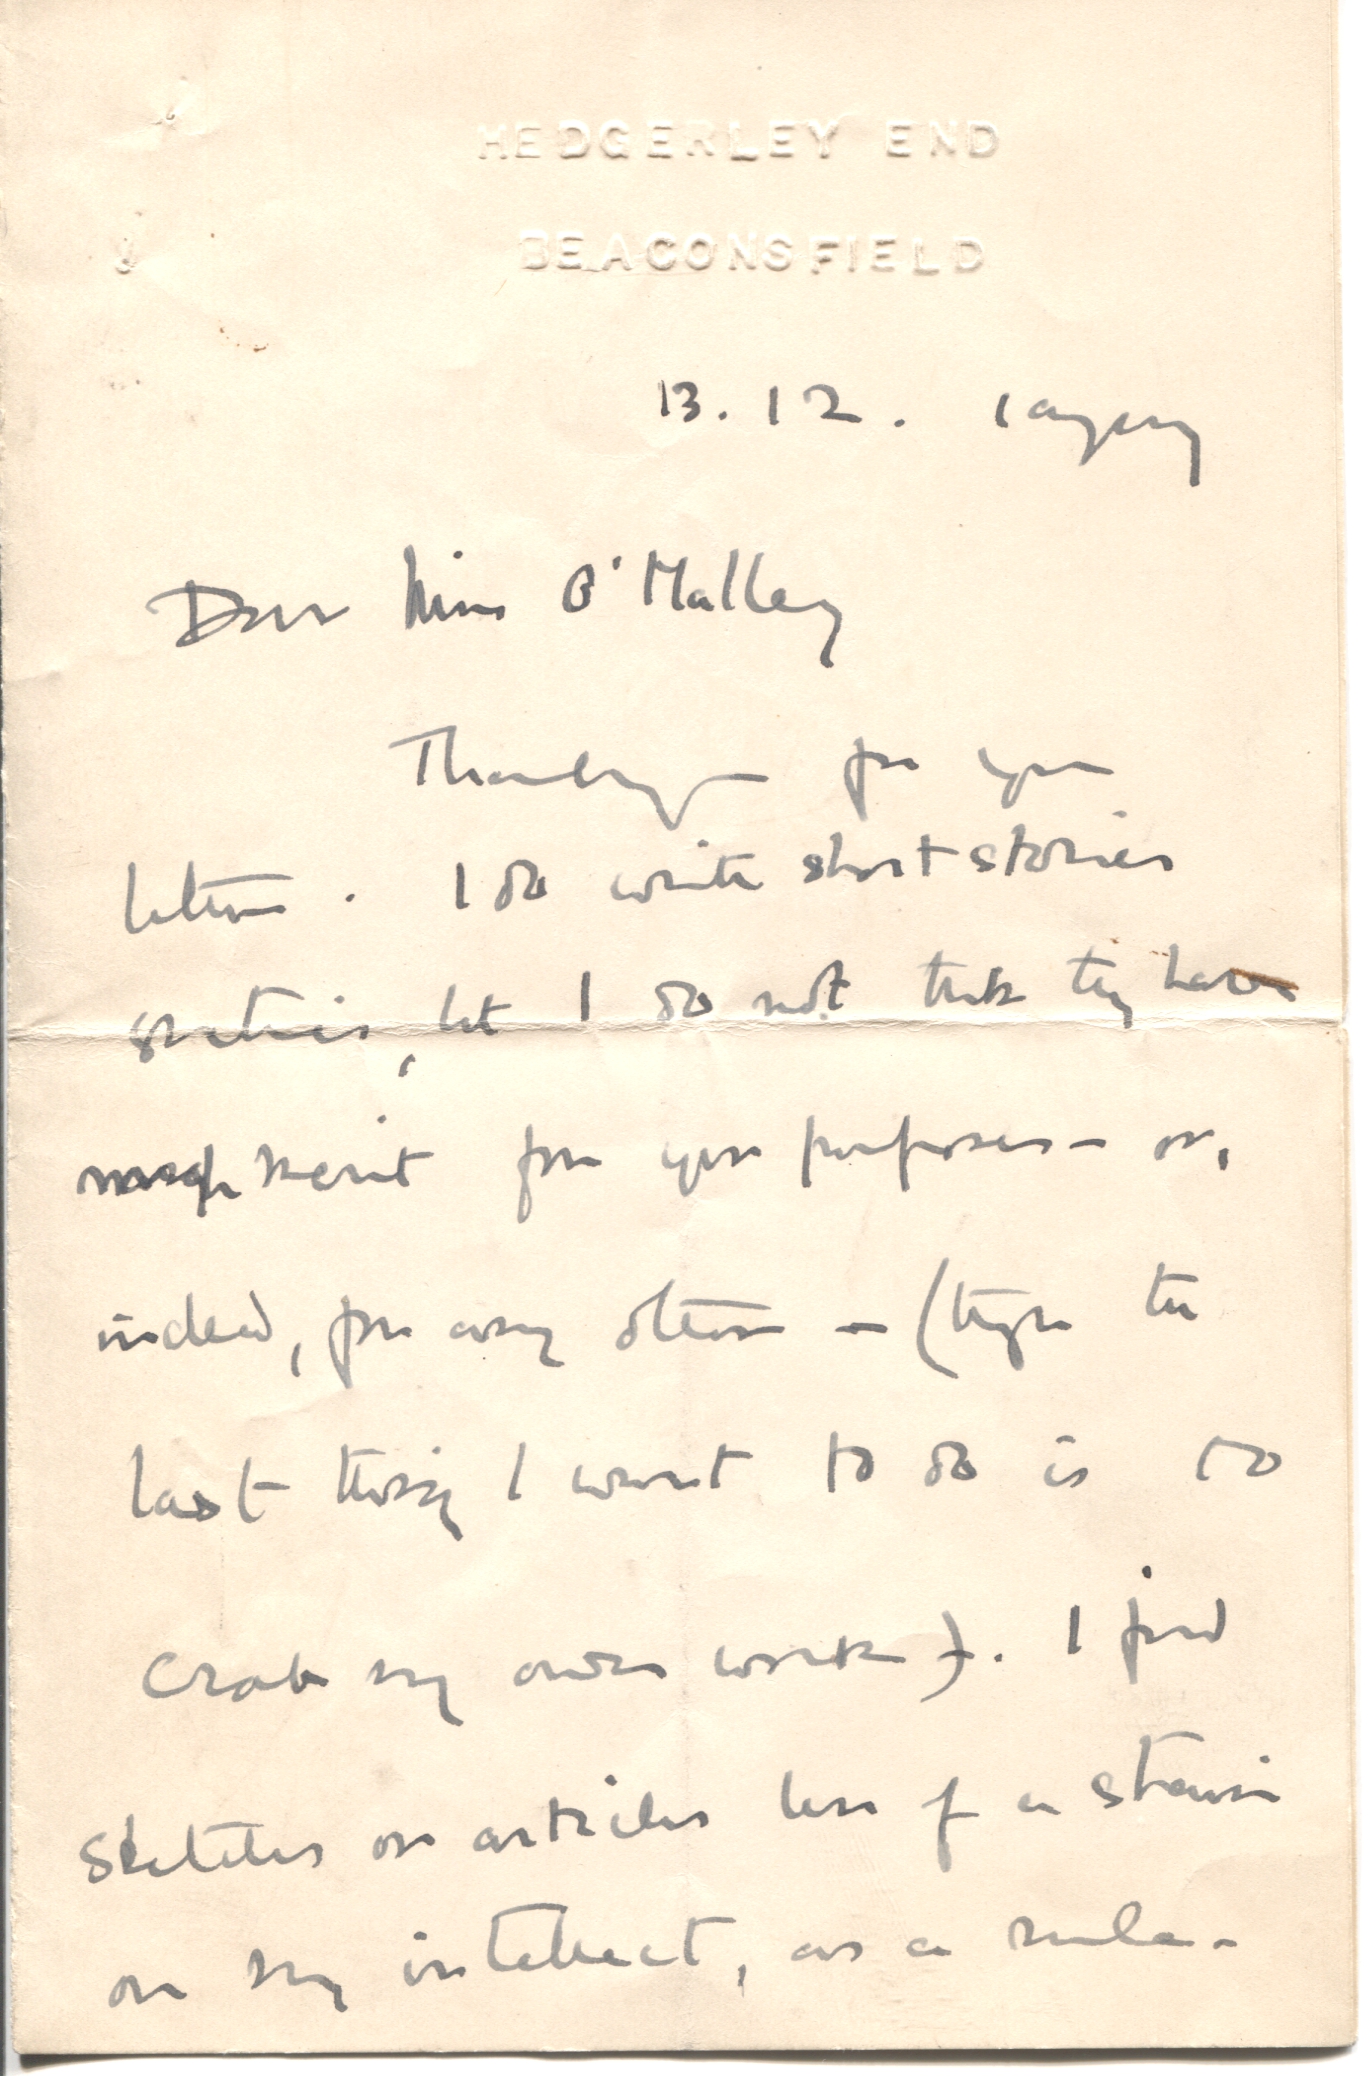 HEDGERLEY END
BEACONSFIELD
13. 12.
Dear Miss O'Malley
Thankyou for your
letter. I do write short stories
sketches, but I do not think they have
much merit for your purposes - or,
indeed, for any other - (tho' the
last thing I want to do is to
crab my own work). I find
sketches or articles less of a strain
on my intellect, as a rule -